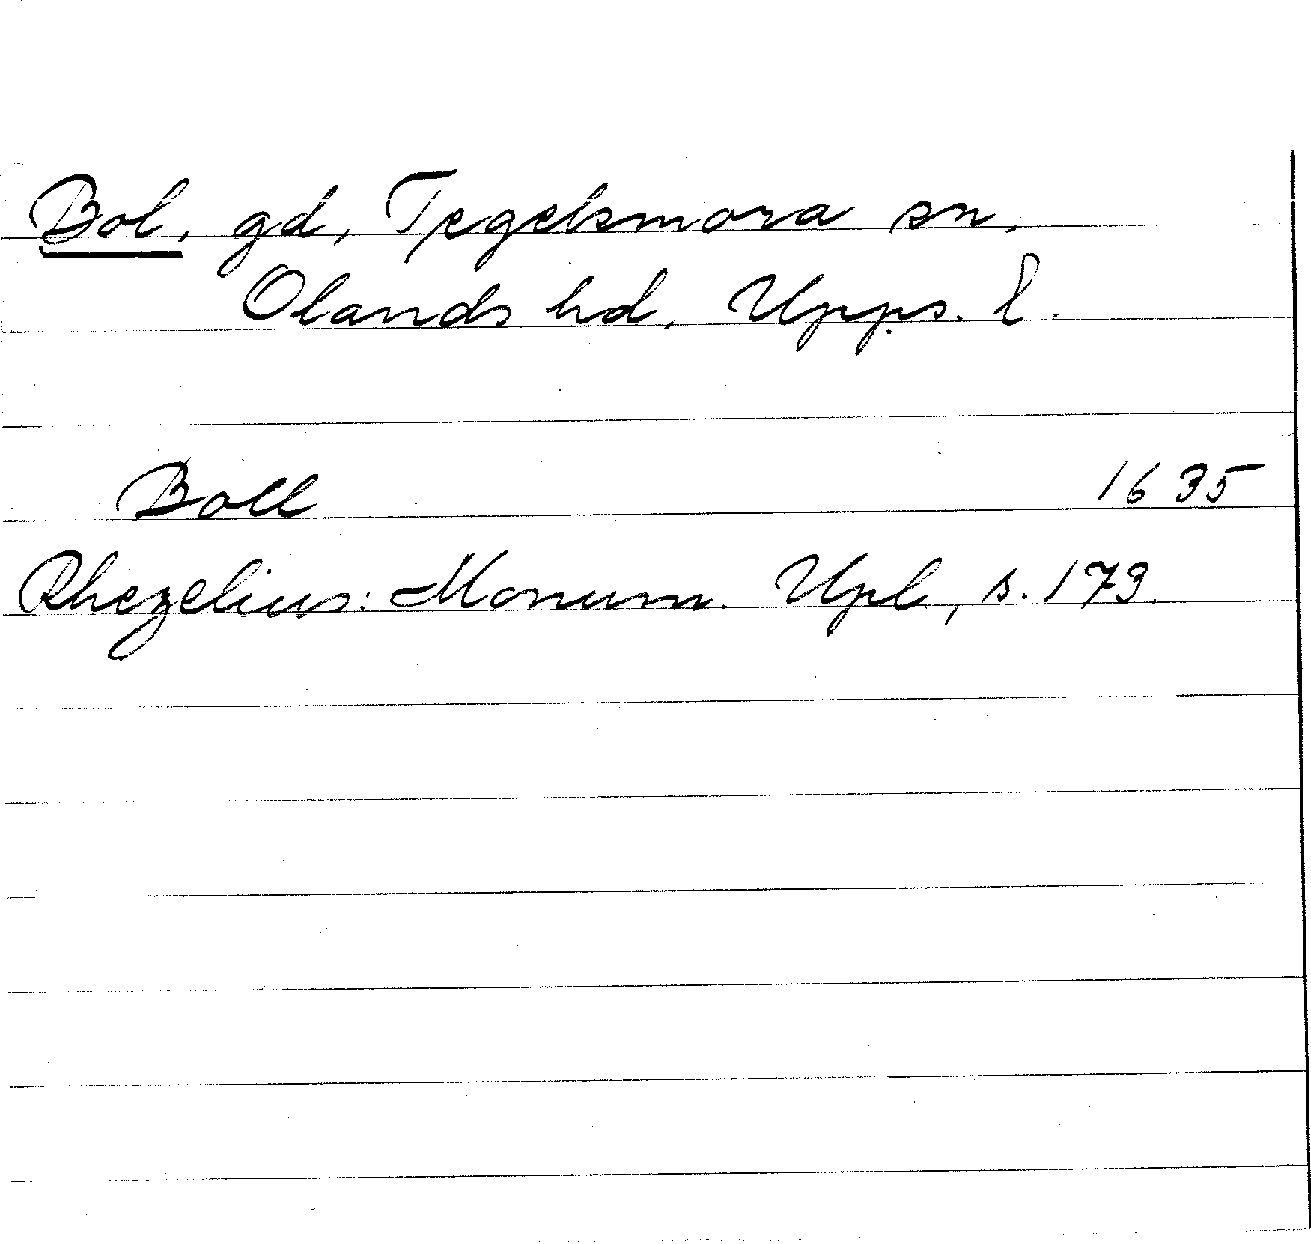 Bol, gd, Tegelsmora sn,
Olands hd, Upps. l.
Boll 1635
Rhezelius: Monum. Upl, s. 173.